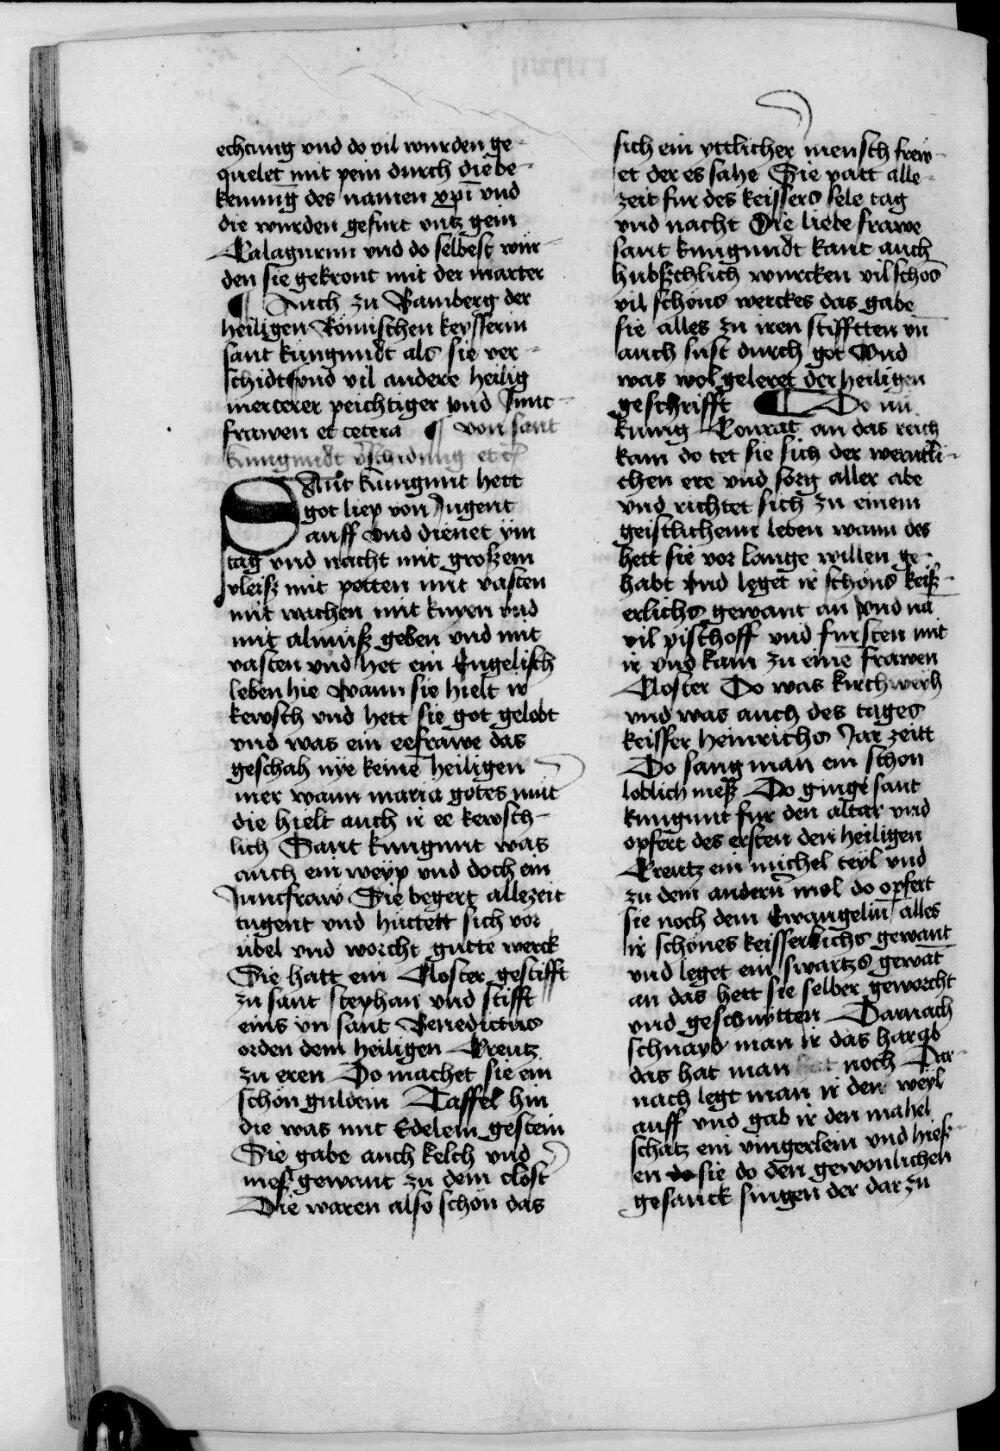 echtung vnd do vil wurden ge-
quelet mit pein durch die be-
kennūg des namen xp̄i vnd
die wurden gefurt vntz gem
Calagurim vnd do selbest wur-
den sie gekront mit der marter
¶ Auch zu Bamberg der
heiligen Römischen keysserin
sant kungundt als sie ver-
schidt vnd vil andere heilig
merterer peichtiger vnd Junc-
frawen et cetera ¶ von sant
kungundt v̄schidung et c̄
SAnt kungunt hett
got liep von Jugent
auff vnd dienet ym
tag vnd nacht mit groſzem
vleiſz mit petten mit vasten
mit wachen mit knyen vnd
mit almuſz geben vnd mit
vasten vnd het ein Engelisch
leben hie Wann sie hielt ir
kewsch vnd hett sie got gelobt
vnd was ein eefrawe das
geschah nye keinē heiligen
mer wann maria gotes mut̄
die hielt auch ir ee kewsch-
lich Sant kungunt was
auch ein weyp vnd doch ein
Juncfraw Sie begert allezeit
tugent vnd huttett sich vor
übel vnd worcht gutte werck
Sie hatt ein Closter gestifft
zu sant stephan vnd stifft
eins yn sant Benedictus
orden dem heiligen Creutz
zu eren Do machet sie ein
schön guldein Taffel hin
die was mit Edelem gestein
Sie gabe auch kelch vnd
meſz gewant zu dem clost̄
Die waren also schön das
sich ein ytlicher mensch frew-
et der es sahe Sie patt alle-
zeit fur des keissers sele tag
vnd nacht Die liebe frawe
sant kungundt kant auch
hubſzchlich wurcken vil schōs
vil schöns werckes das gabe
sie alles zu iren stifftten vn̄
auch sust durch got Vnd
was wol geleret der heiligen
geschrifft ¶ Do nū
kunig Conrat an das reich
kam do tet sie sich der werntli-
chen ere vnd sorg aller abe
vnd richtet sich zu einem
geistlichenn leben wann des
hett sie vor lange willen ge-
habt vnd leget ir schöns keiſz-
erlichs gewant an vnd nā
vil pischoff vnd fursten mit
ir vnd kam zu eine frawen
Closter Do was kirchweyh
vnd was auch des tages
keisser heinrichs Jar zeitt
Do sang man ein schon
loblich meſz Do ginge sant
kungunt fur den altar vnd
opfert des ersten den heiligen
Creutz ein michel teyl vnd
zu dem andern mol do opfert
sie noch dem Ewangeliū alles
ir schönes keisserlichs gewant
vnd leget ein swartzs gewāt
an das hett sie selber geworcht
vnd geschnytten Darnach
schnayd man ir das har ab
das hat man noch Dar-
nach legt man ir den weyl
auff vnd gab ir den mahel
schatz ein vingerlein vnd hieſz-
en sie do den gewonlichen
gesanck singen der dar zu